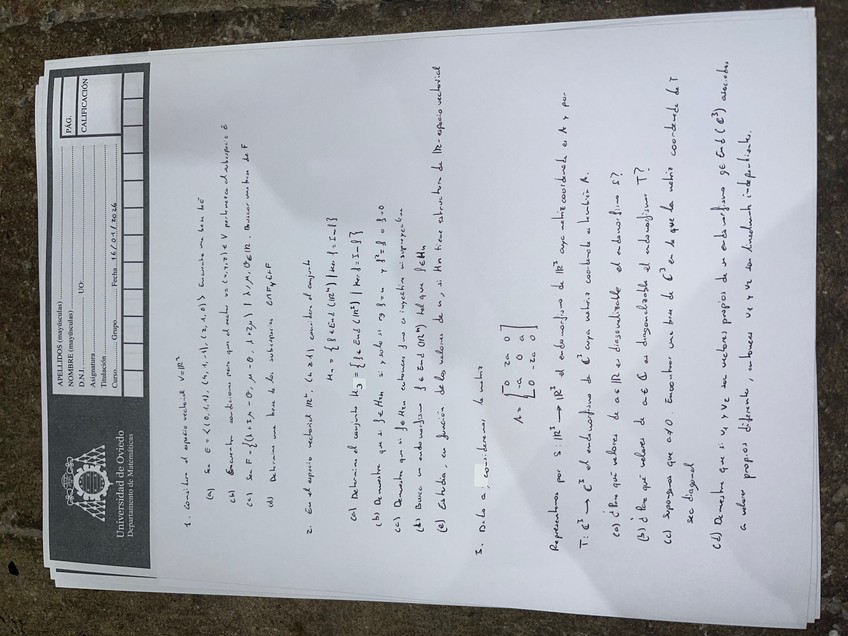 Universidad de Oviedo
Departamento de Matemáticas
APELLIDOS (mayúsculas)
NOMBRE (mayúsculas)
D.N.I. UO:
Asignatura
Titulación
Curso Grupo Fecha 16/01/2024
PÁG.
CALIFICACIÓN
1. Considera el espacio vectorial V=ℝ³
(a) Sea E = {(0,1,1), (1,1,-1), (2,1,0)} Encuentra una base de E
(b) Encuentra condiciones para que el vector v=(x,y,z) ∈ V pertenezca al subespacio E
(c) Sea F = | λ, μ, θ ∈ ℝ. Buscar una base de F
(d) Determina una base de los subespacios E∩F y E+F
2. En el espacio vectorial considera el conjunto
(a) Determina el conjunto
(b) Demuestra que si f ∈ Hn si y solo si rg f = n y f² = f∘f = 0
(c) Demuestra que si f ∈ Hn entonces no es inyectiva ni suprayectiva
(d) Busca un endomorfismo tal que f ∈ Hn
(e) Estudia, en función de los valores de n, si Hn tiene estructura de ℝ-espacio vectorial
3. Dado a, consideremos la matriz
A = [0 2a 0
-a 0 a
0 -2a 0]
Representamos por S: ℝ³ → ℝ³ el endomorfismo de ℝ³ cuya matriz coordenada es A y por
T: ℂ³ → ℂ³ el endomorfismo de ℂ³ cuya matriz coordenada es también A.
(a) ¿Para qué valores de a ∈ ℝ es diagonalizable el endomorfismo S?
(b) ¿Para qué valores de a ∈ ℂ es diagonalizable el endomorfismo T?
(c) Supongamos que a≠0. Encontrar una base de ℂ³ en la que la matriz coordenada de T
sea diagonal
(d) Demuestra que si v₁ y v₂ son vectores propios de un endomorfismo g ∈ End(ℂ³) asociados
a valores propios diferentes, entonces v₁ y v₂ son linealmente independientes.